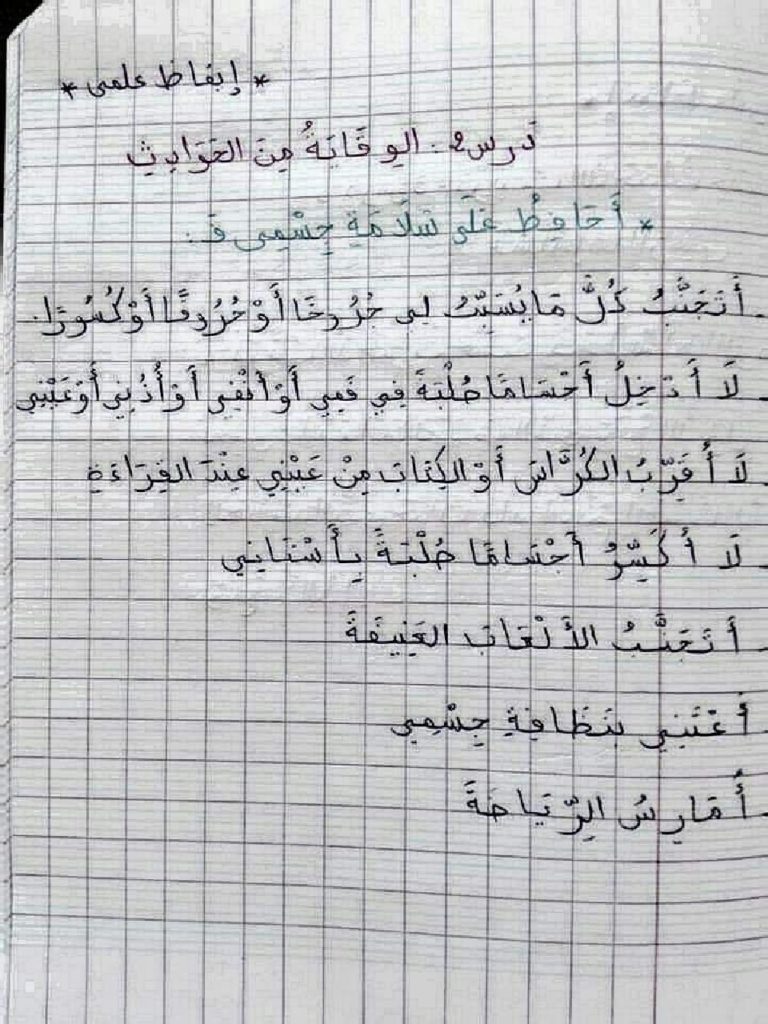 * إيقاظ علمي *
درس2: الوِقَايَةُ مِنَ الحَوَادِثِ
* أُحَافِظُ عَلَى سَلَامَةِ جِسْمِي فَ:
. أَتَجَنَّبُ كُلَّ مَا يُسَبِّبُ لِي جُرُوحًا أَوْ حُرُوقًا أَوْ كُسُورًا.
. لَا أُدْخِلُ أَجْسَامًا صُلْبَةً فِي فَمِي أَوْ أَنْفِي أَوْ أُذُنِي أَوْ عَيْنِي
. لَا أُقَرِّبُ الكُرَّاسَ أَوْ الكِتَابَ مِنْ عَيْنِي عِنْدَ القِرَاءَةِ
. لَا أُكَسِّرُ أَجْسَامًا صُلْبَةً بِأَسْنَانِي
. أَتَجَنَّبُ الأَلْعَابَ العَنِيفَةَ
. أَعْتَنِي بِنَظَافَةِ جِسْمِي
. أُمَارِسُ الرِّيَاضَةَ